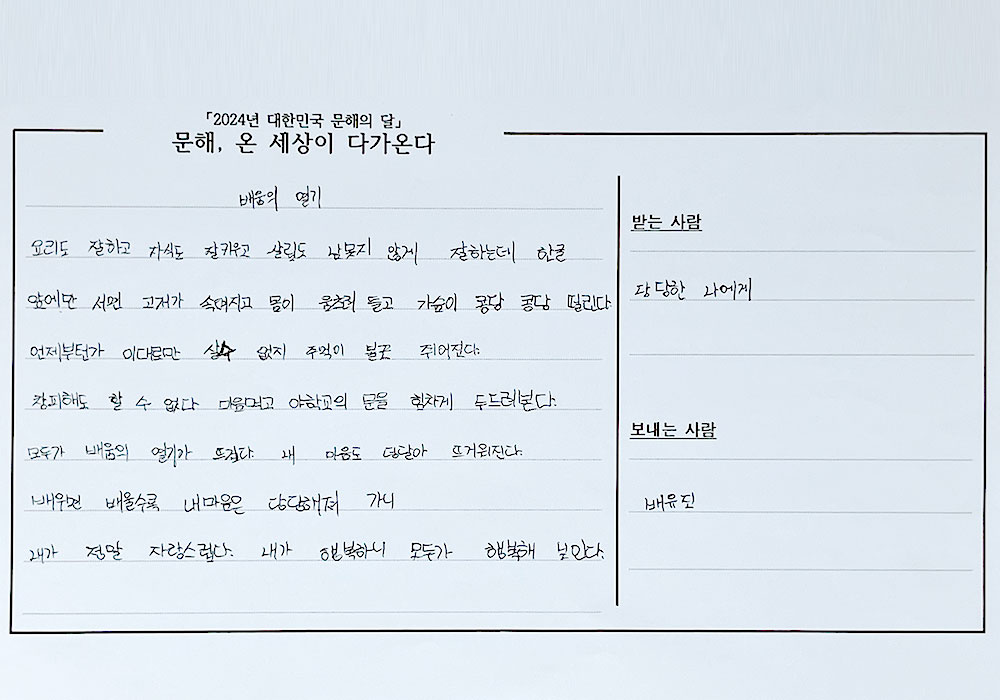 「2024년 대한민국 문해의 달」
문해, 온 세상이 다가온다
배움의 열기
요리도 잘하고 자식도 잘키우고 살림도 남못지 않게 잘하는데 한글
앞에만 서면 고저가 숙여지고 몸이 움츠려 들고 가슴이 콩당 콩당 떨린다
언제부턴가 이대로만 살수 없지 주먹이 불끈 쥐어진다.
창피해도 할 수 없다 마음먹고 야학교의 문을 힘차게 두드려본다.
모두가 배움의 열기가 뜨겁다. 내 마음도 덩달아 뜨거워진다.
배우면 배울수록 내마음은 당당해져 가니
내가 정말 자랑스럽다. 내가 행복하니 모두가 행복해 보인다.
받는 사람
당당한 나에게
보내는 사람
배유진